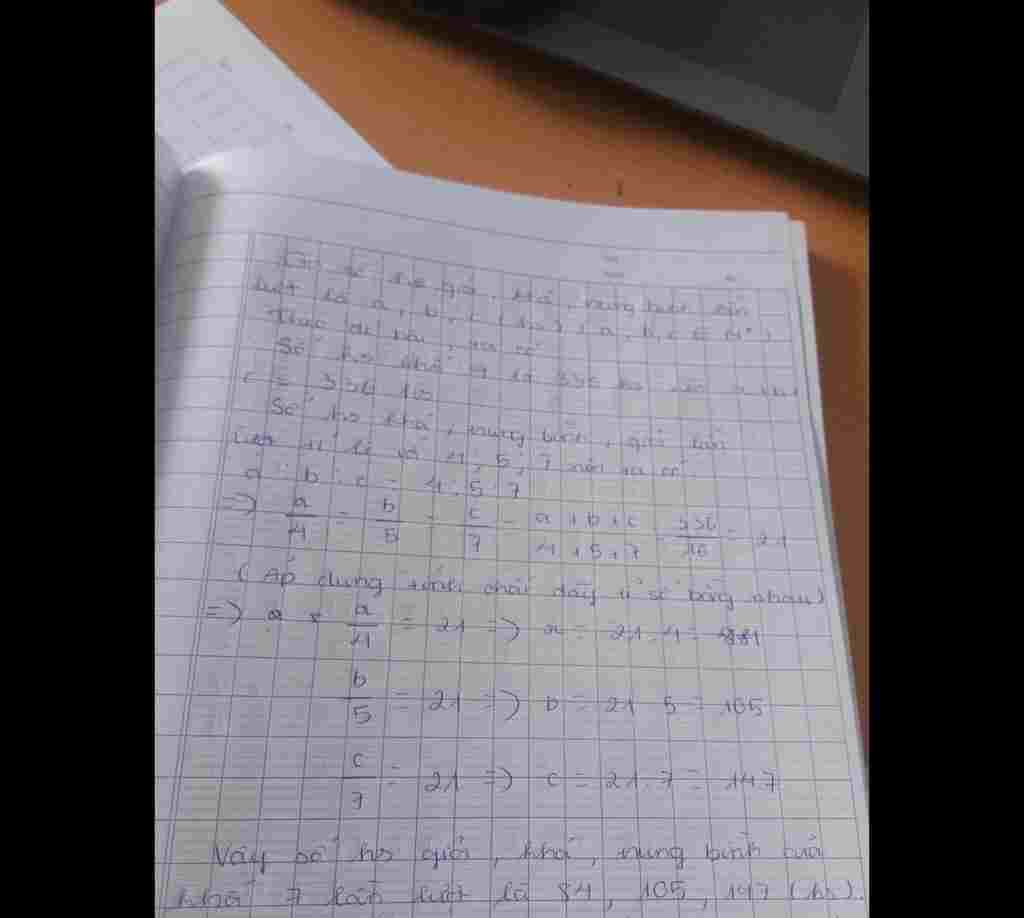 Gọi số hs giỏi, khá, trung bình lần
lượt là a, b, c (hs) (a, b, c ∈ N*)
Theo đề bài, ta có
Số hs khối 7 là 336 hs
c = 336 hs
Số hs khá, trung bình, giỏi lần
lượt tỉ lệ với 4; 5; 7 nên ta có
a : b : c = 4 : 5 : 7
=> a/4 = b/5 = c/7 = a + b + c / 4 + 5 + 7 = 336/16 = 21
(Áp dụng tính chất dãy tỉ số bằng nhau)
=> a/4 = 21 => a = 21.4 =
b/5 = 21 => b = 21 5 = 105
c/7 = 21 => c = 21.7 = 147
Vậy số hs giỏi, khá, trung bình của
khối 7 lần lượt là 84, 105, 147 (hs).